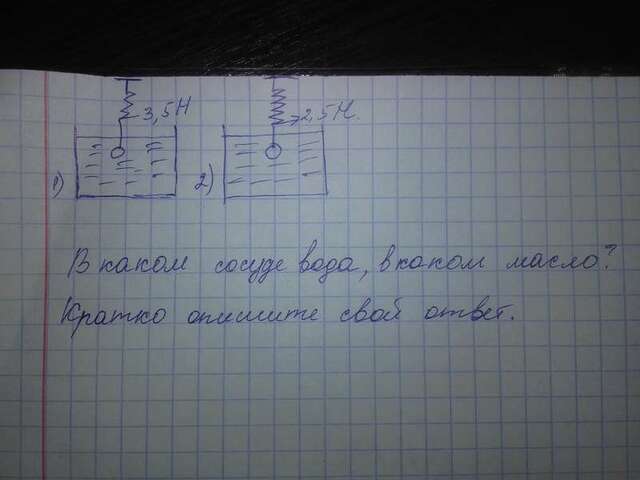 3,5Н 2,5Н.
1) 2)
В каком сосуде вода, в каком масло?
Кратко опишите свой ответ.